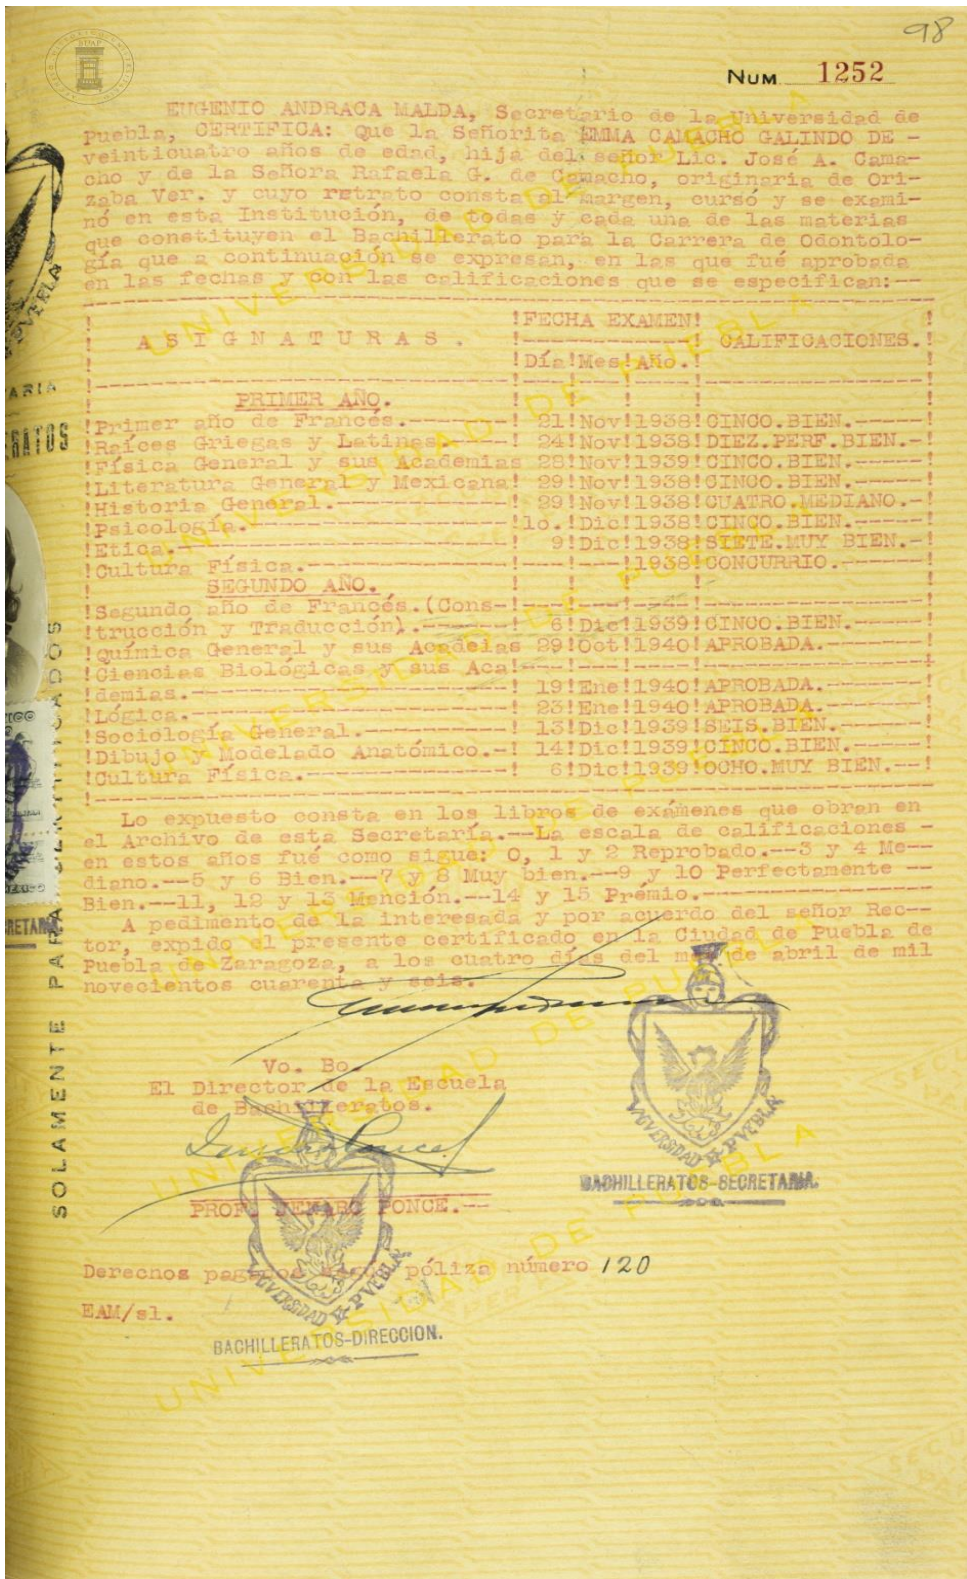 98
NUM 1252
EUGENIO ANDRACA MALDA, Secretario de la Universidad de
Puebla, CERTIFICA: Que la Señorita EMMA CAMACHO GALINDO DE -
veinticuatro años de edad, hija del señor Lic. José A. Cama-
cho y de la Señora Rafaela G. de Camacho, originaria de Ori-
zaba Ver. y cuyo retrato consta al margen, cursó y se exami-
nó en esta Institución, de todas y cada una de las materias
que constituyen el Bachillerato para la Carrera de Odontolo-
gía que a continuación se expresan, en las que fué aprobada
en las fechas y con las calificaciones que se especifican:--
!FECHA EXAMEN!
A S I G N A T U R A S . CALIFICACIONES.!
!Día!Mes!Año.!
PRIMER AÑO.
!Primer año de Francés.--------! 21!Nov!1938!CINCO.BIEN.-----!
!Raíces Griegas y Latinas------! 24!Nov!1938!DIEZ.PERF.BIEN.-!
!Física General y sus Academias 28!Nov!1939!CINCO.BIEN.------!
!Literatura General y Mexicana! 29!Nov!1938!CINCO.BIEN.------!
!Historia General.-------------! 29!Nov!1938!CUATRO.MEDIANO.-!
!Psicología.------------------!1o.!Dic!1938!CINCO.BIEN.------!
!Etica.-----------------------! 9!Dic!1938!SIETE.MUY BIEN.-!
!Cultura Física.--------------!---!---!1938!CONCURRIO.------!
SEGUNDO AÑO.
!Segundo año de Francés.(Cons-!---!---!----!---------------!
!trucción y Traducción).------! 6!Dic!1939!CINCO.BIEN.-----!
!Química General y sus Acadeias 29!Oct!1940!APROBADA.------!
!Ciencias Biológicas y sus Aca!---!---!----!---------------!
!demias.----------------------! 19!Ene!1940!APROBADA.------!
!Lógica.----------------------! 23!Ene!1940!APROBADA.------!
!Sociología General.----------! 13!Dic!1939!SEIS.BIEN.-----!
!Dibujo y Modelado Anatómico.-! 14!Dic!1939!CINCO.BIEN.-----!
!Cultura Física.--------------! 6!Dic!1939!OCHO.MUY BIEN.--!
Lo expuesto consta en los libros de exámenes que obran en
el Archivo de esta Secretaría.--La escala de calificaciones -
en estos años fué como sigue: 0, 1 y 2 Reprobado.--3 y 4 Me--
diano.--5 y 6 Bien.--7 y 8 Muy bien.--9 y 10 Perfectamente --
Bien.--11, 12 y 13 Mención.--14 y 15 Prémio.----------------
A pedimento de la interesada y por acuerdo del señor Rec--
tor, expido el presente certificado en la Ciudad de Puebla de
Puebla de Zaragoza, a los cuatro días del mes de abril de mil
novecientos cuarenta y seis.
Vo. Bo.
El Director de la Escuela
de Bachilleratos.
UNIVERSIDAD DE PUEBLA
BACHILLERATOS-SECRETARIA.
PROF. PONCE.---
Derechos pagados según póliza número 120
EAM/sl.
UNIVERSIDAD DE PUEBLA
BACHILLERATOS-DIRECCION.
SOLAMENTE PARA CERTIFICADOS